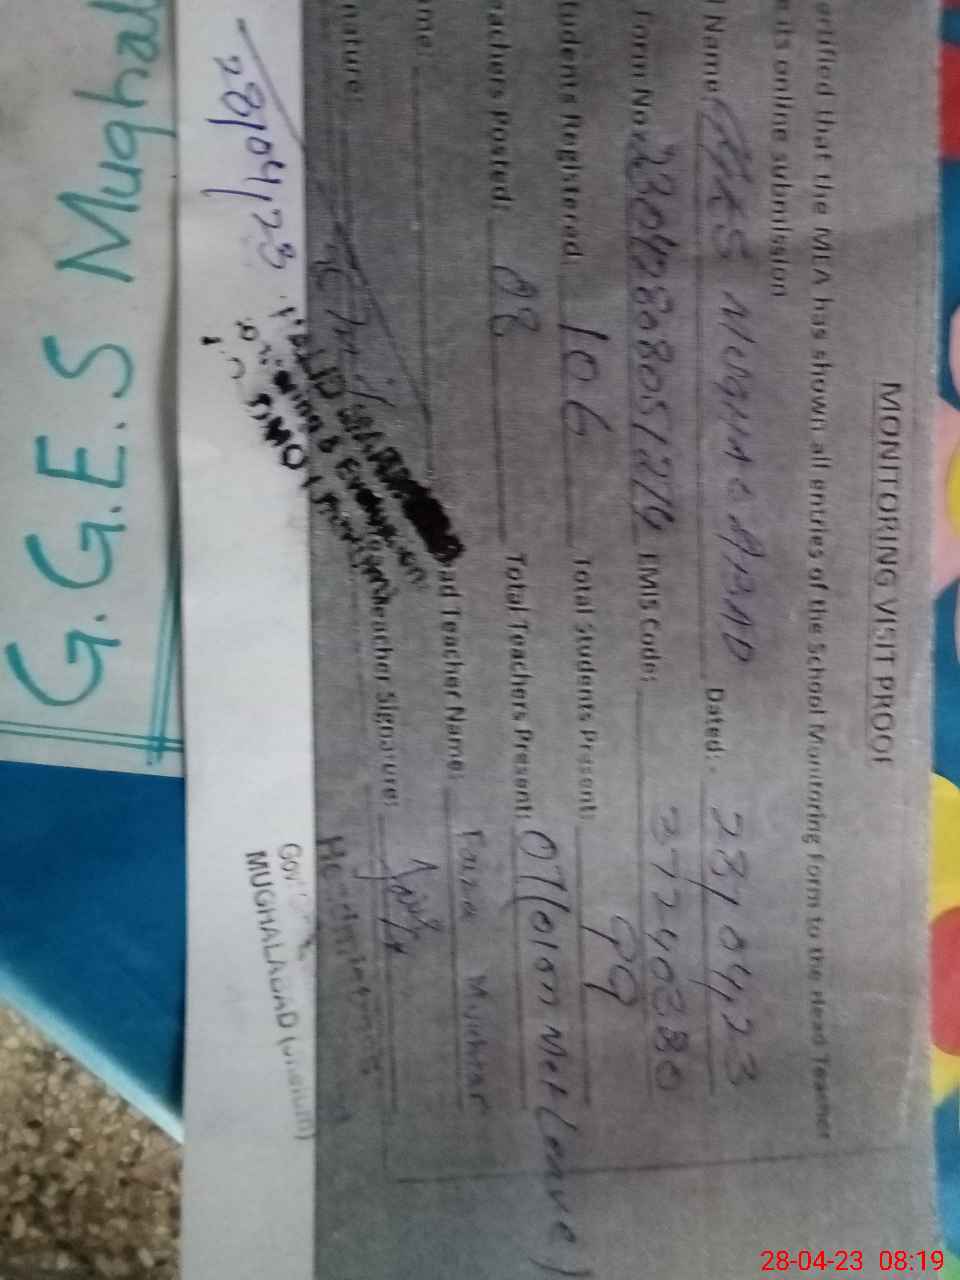 MONITORING VISIT PROOF
ertified that the MEA has shown all entries of the School Monitoring Form to the Head Teacher
cts online submission
l Name: GES MUGHALABAD Dated: - 28/04/23
Form No: EMIS Code: 37240380
tudents Registered 106 Total Students Present: 99
achers Posted: 08 Total Teachers Present: 07 (01 on Mat Leave)
me: ad Teacher Name: Faiza Mukhtar
nature: eacher Signature:
28/04/23
& Evaluation
DMO
Headmistress
MUGHALABAD
G.G.E.S Mughal
28-04-23 08:19